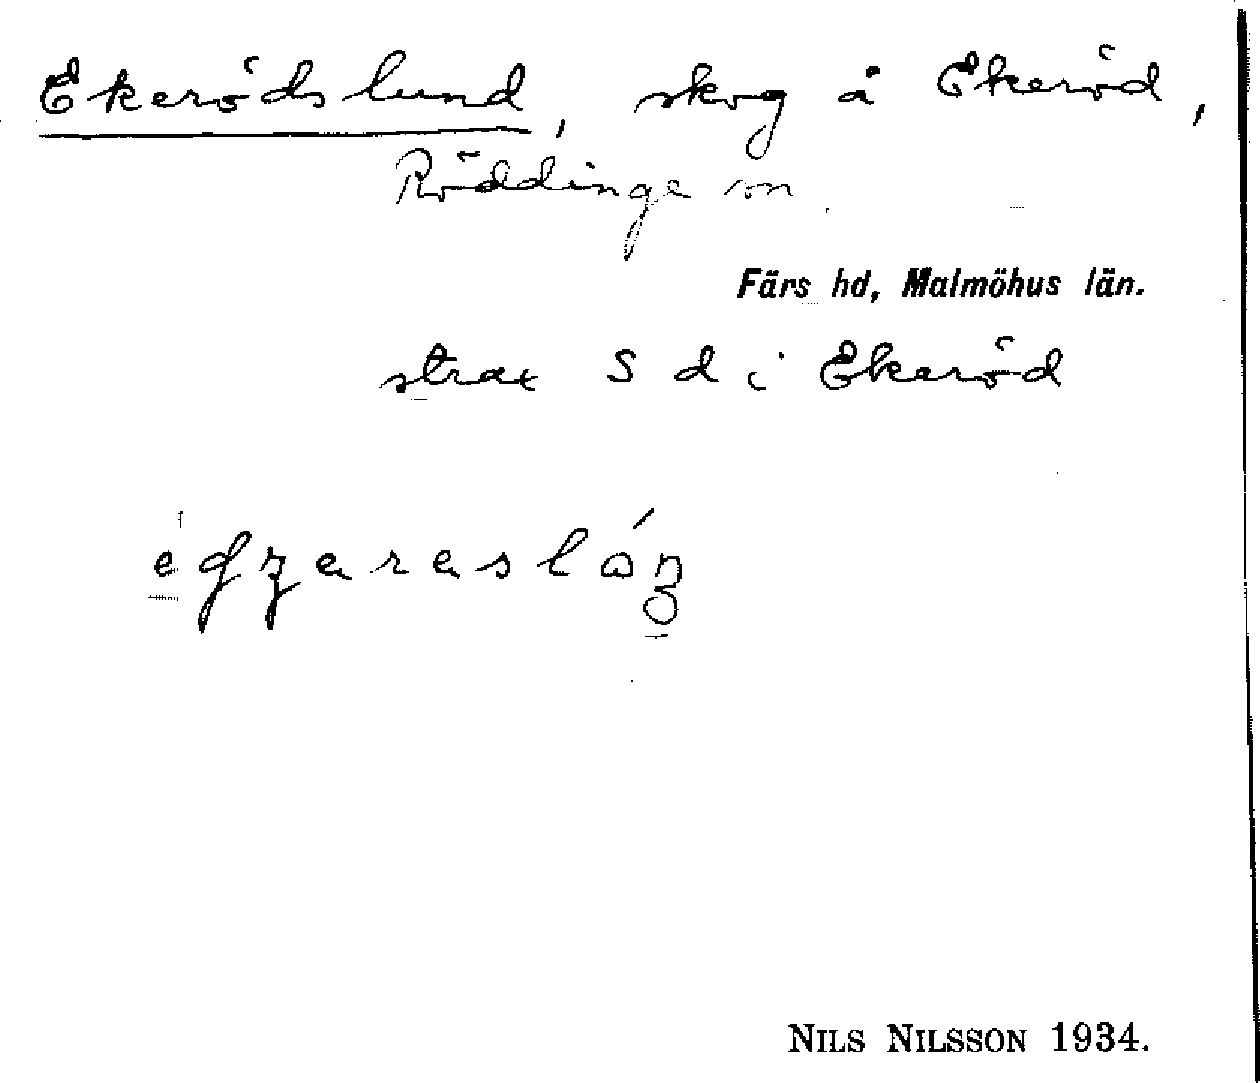 Ekerödslund, skog å Ekeröd,
Röddinge sn
Färs hd, Malmöhus län.
strax S d i Ekeröd
NILS NILSSON 1934.